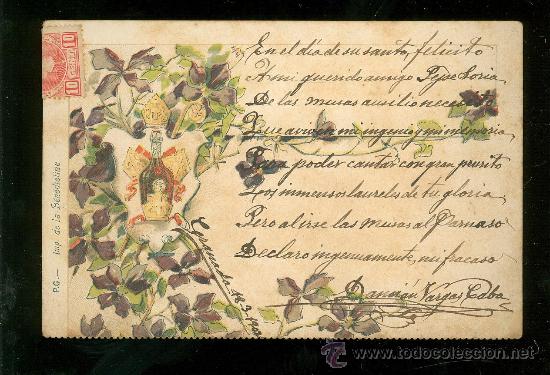 En el día de su santo, felicito
A mi querido amigo Pepe Soria
De las musas auxilio necesito
Que aviven mi ingenio y mi memoria,
Para poder cantar con gran prurito
Los inmensos laureles de tu gloria,
Pero al irse las musas al Parnaso
Declaro ingenuamente, mi fracaso
Damián Vargas
18-3-
P.G.— Imp. de la Bénédictine
10
10
www.todocoleccion.net